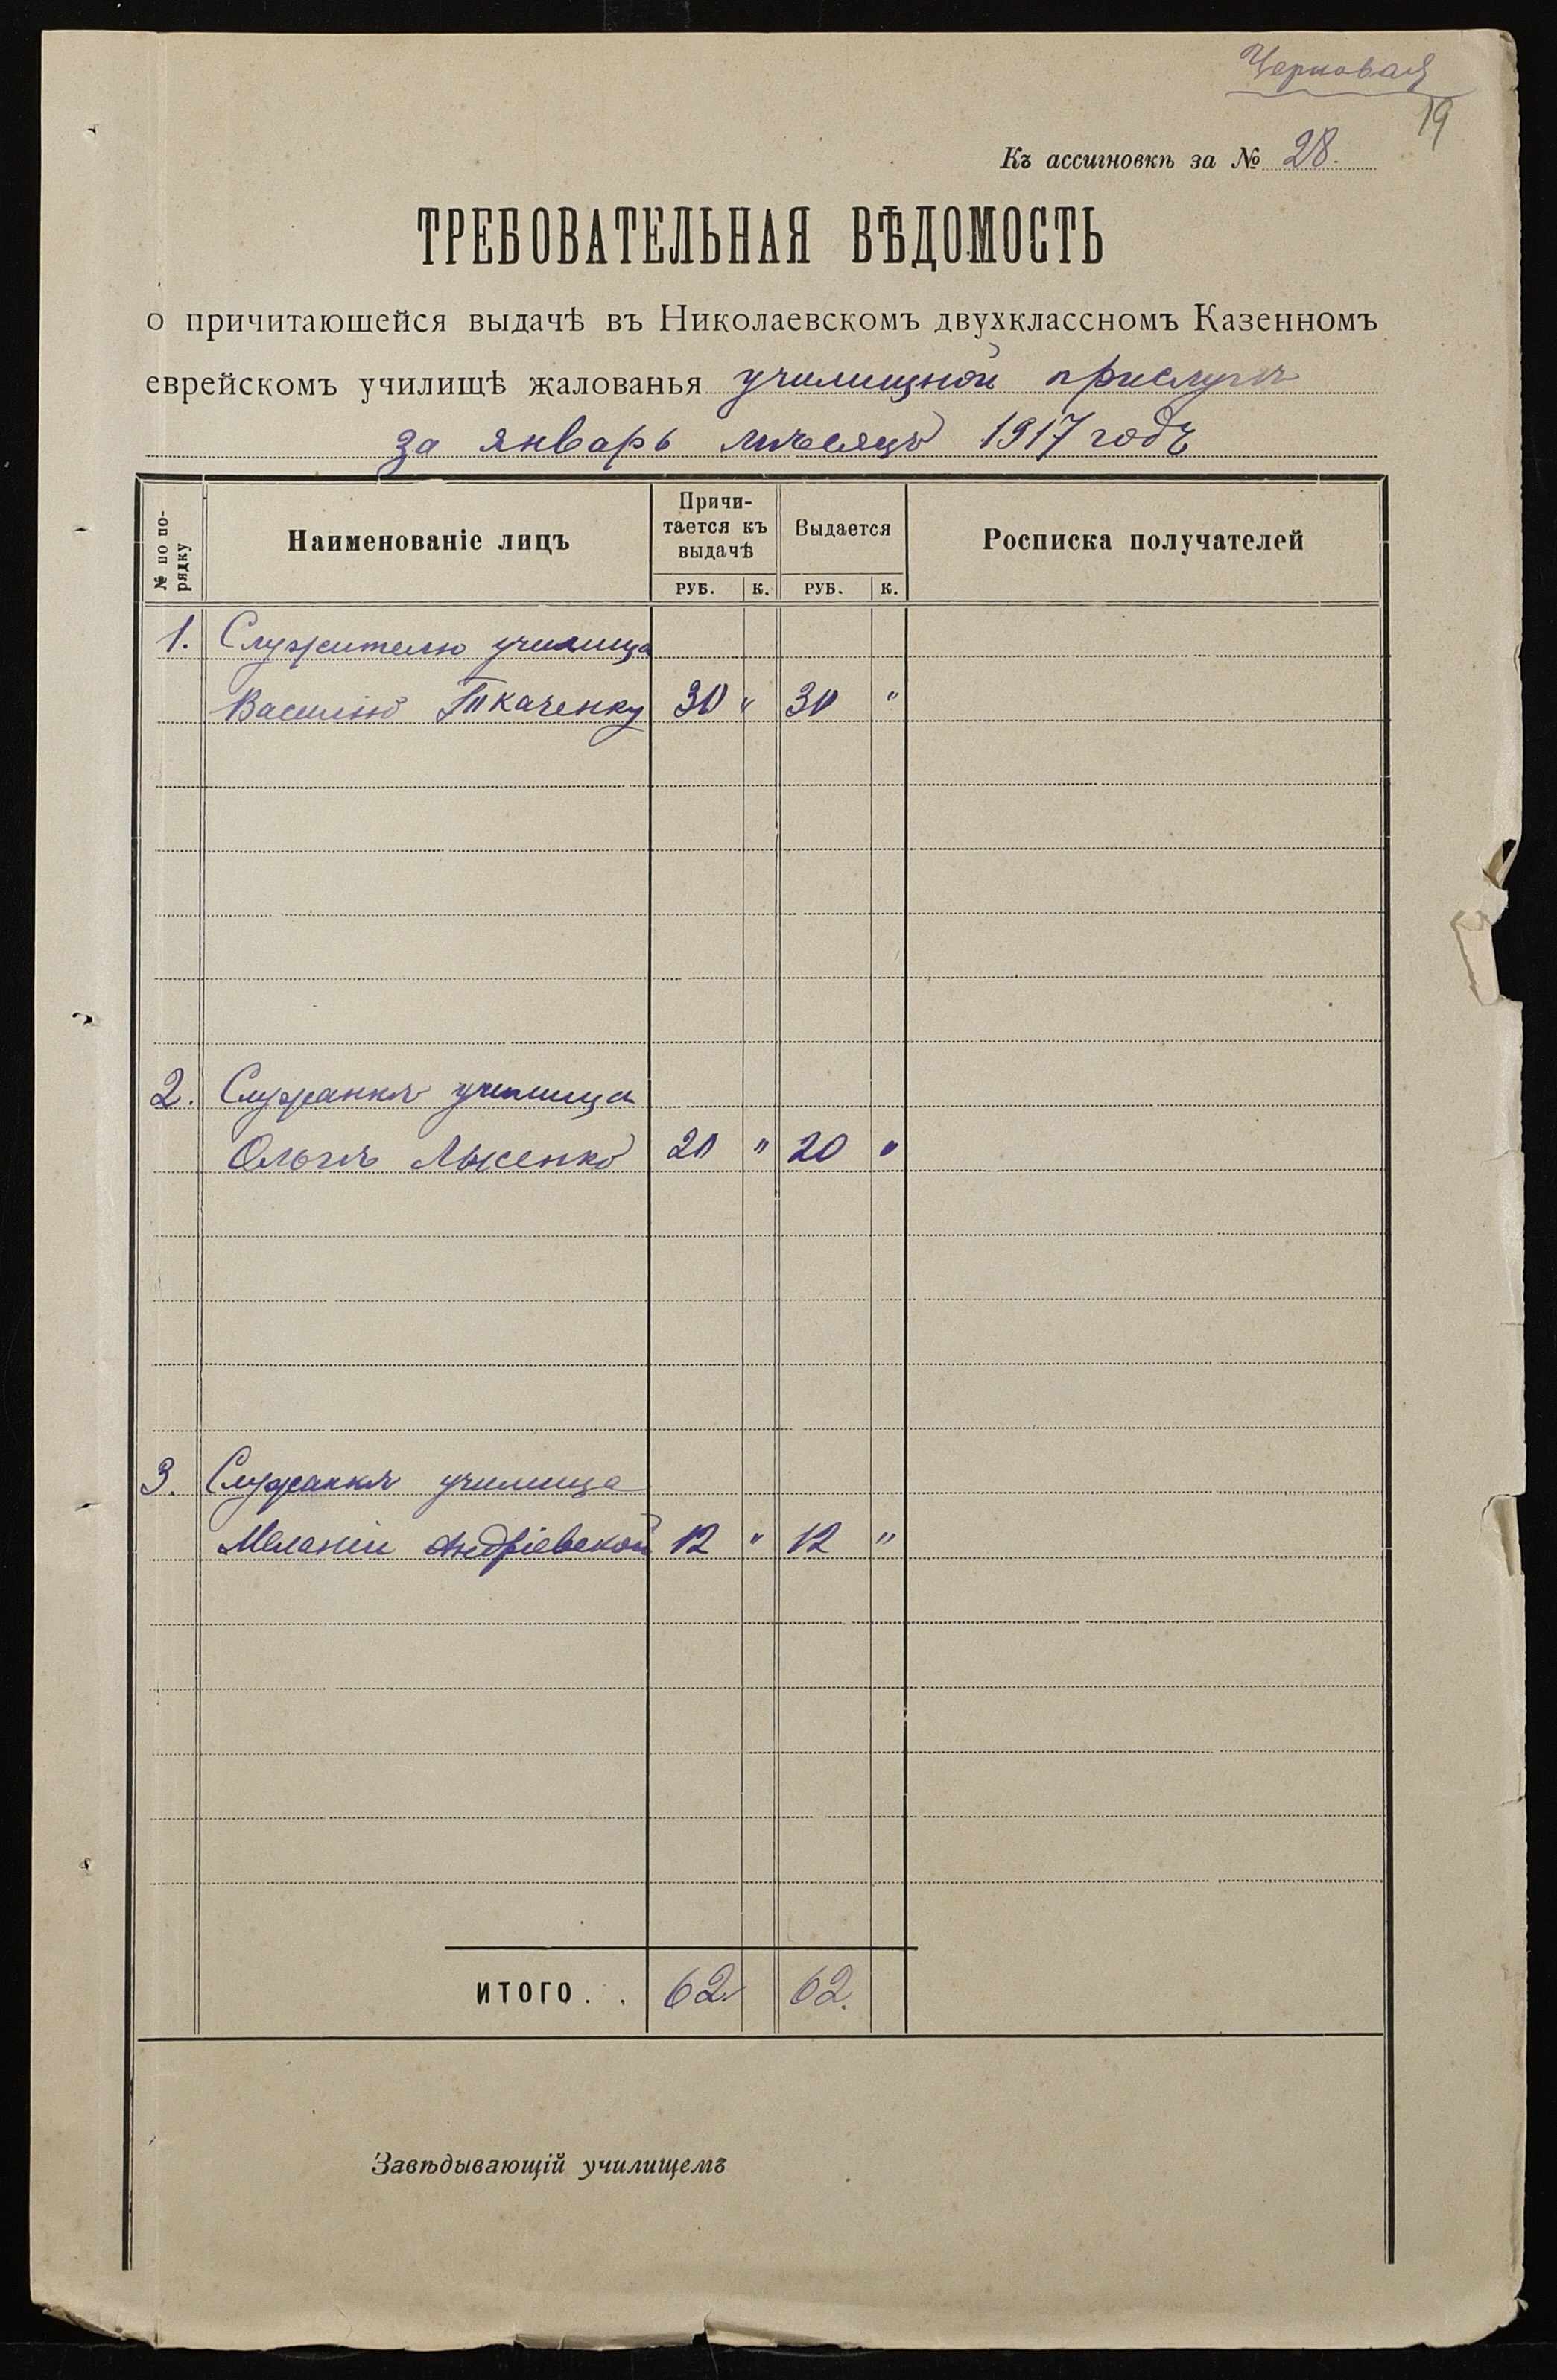 Черновая
19
Къ ассигновкѣ за № 28.
ТРЕБОВАТЕЛЬНАЯ ВѢДОМОСТЬ
о причитающейся выдачѣ въ Николаевскомъ двухклассномъ Казенномъ
еврейскомъ училищѣ жалованья училищной прислугѣ
за январь мѣсяцъ 1917 годъ
№ по по-
рядку
Наименованіе лицъ
Причи-
тается къ
выдачѣ
Выдается
Росписка получателей
РУБ. К. РУБ. К.
1. Служителю училища
Василію Ткаченку 30 " 30 "
2. Служанкѣ училища
Ольгѣ Лысенко 20 " 20 "
3. Служанкѣ училища
Меланіи Андріевской 12 " 12 "
ИТОГО . . 62 62.
Завѣдывающій училищемъ